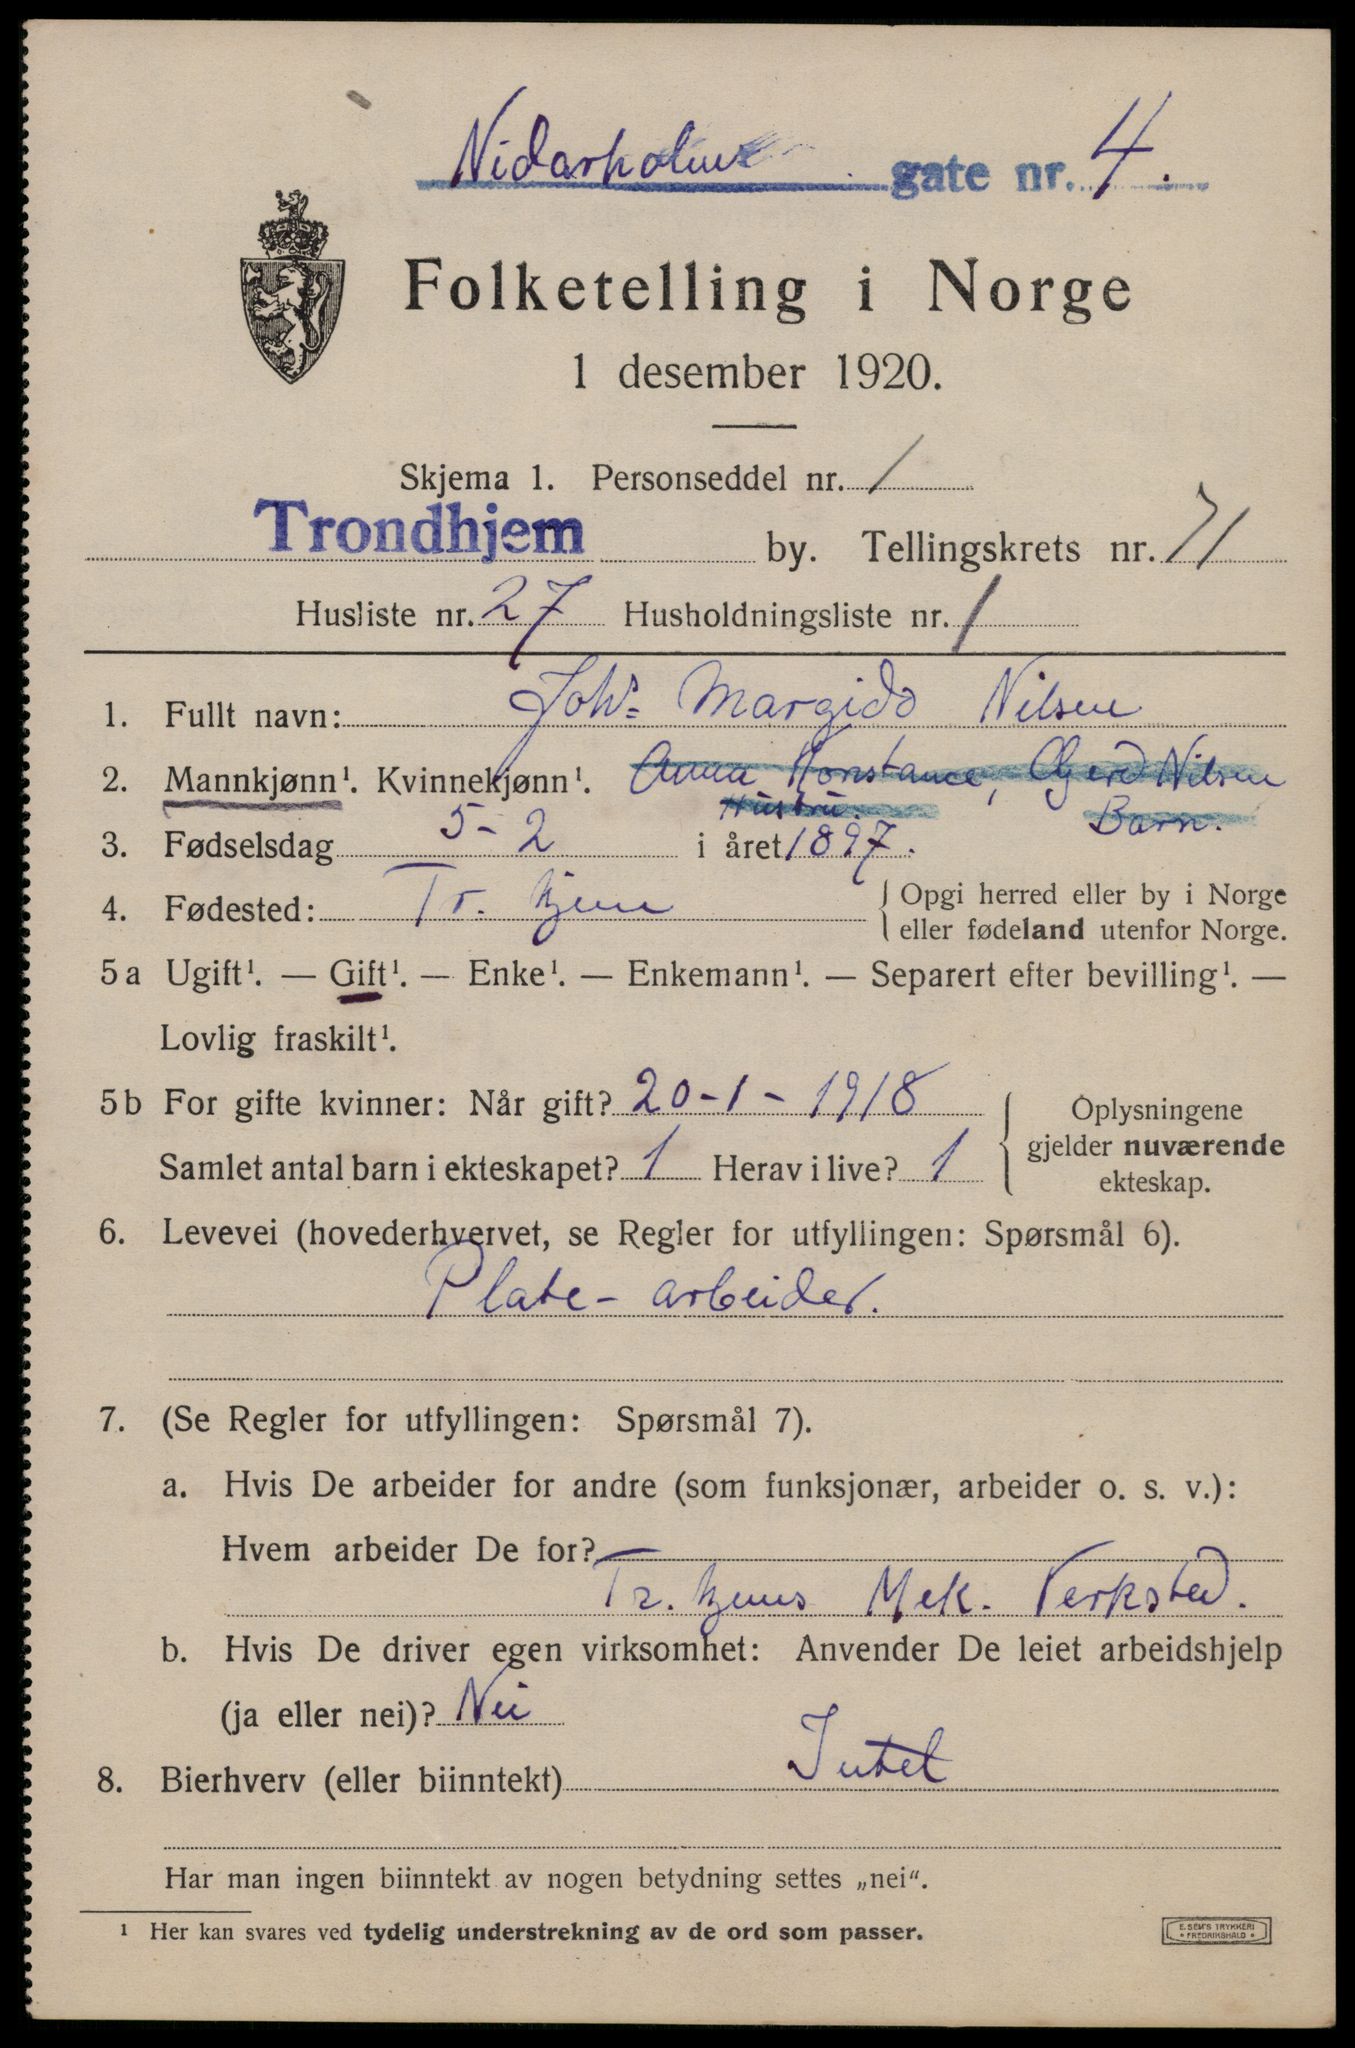 Nidarholms gate nr. 4.
Folketelling i Norge
1 desember 1920.
Skjema 1. Personseddel nr. 1
Trondhjem by. Tellingskrets nr. 71
Husliste nr. 27 Husholdningsliste nr. 1
1. Fullt navn: Johs Margido Nilsen
2. Mannkjønn¹. Kvinnekjønn¹. Anna Konstance, Gjerd Nilsen
Hustru. Barn.
3. Fødselsdag 5-2 i året 1897.
4. Fødested: Tr. hjem { Opgi herred eller by i Norge
eller fødeland utenfor Norge.
5a Ugift¹. — Gift¹. — Enke¹. — Enkemann¹. — Separert efter bevilling¹. —
Lovlig fraskilt¹.
5b For gifte kvinner: Når gift? 20-1-1918 { Oplysningene
gjelder nuværende
Samlet antal barn i ekteskapet? 1 Herav i live? 1
ekteskap.
6. Levevei (hovederhvervet, se Regler for utfyllingen: Spørsmål 6).
Plate-arbeider.
7. (Se Regler for utfyllingen: Spørsmål 7).
a. Hvis De arbeider for andre (som funksjonær, arbeider o. s. v.):
Hvem arbeider De for?
Tr. hjems Mek. Verksted.
b. Hvis De driver egen virksomhet: Anvender De leiet arbeidshjelp
(ja eller nei)? Nei
8. Bierhverv (eller biinntekt) Intet
Har man ingen biinntekt av nogen betydning settes „nei“.
¹ Her kan svares ved tydelig understrekning av de ord som passer.
E. SEM'S TRYKKERI
• FREDRIKSHALD •